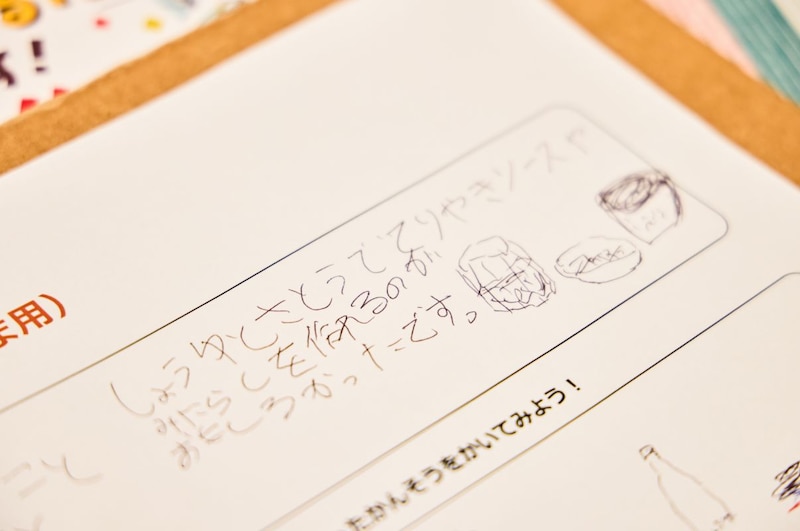 す！
ま用）
しょうゆとさとうでてりやきソースや
みたらしを作れるのが
おもしろかったです。
こと
たかんそうをかいてみよう！